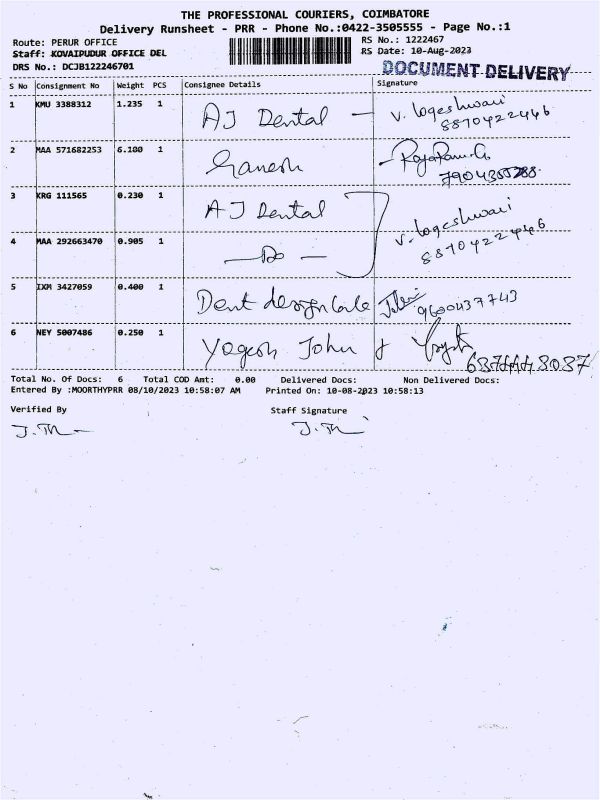 THE PROFESSIONAL COURIERS, COIMBATORE
Delivery Runsheet - PRR - Phone No.:0422-3505555 - Page No.:1
Route: PERUR OFFICE RS No.: 1222467
Staff: KOVAIPUDUR OFFICE DEL RS Date: 10-Aug-2023
DRS No.: DCJB122246701 DOCUMENT DELIVERY
S No Consignment No Weight PCS Consignee Details Signature
1 KMU 3388312 1.235 1 AJ Dental - V. Logeshwari
8870422446
2 MAA 571682253 6.100 1 Ganesh
3 KRG 111565 0.230 1 AJ Dental V. Logeshwari
8870422446
4 MAA 292663470 0.905 1 - Do -
5 IXM 3427059 0.400 1 Dent design 9600437743
6 NEY 5007486 0.250 1 Yogesh John
Total No. Of Docs: 6 Total COD Amt: 0.00 Delivered Docs: Non Delivered Docs:
Entered By :MOORTHYPRR 08/10/2023 10:58:07 AM Printed On: 10-08-2023 10:58:13
Verified By Staff Signature